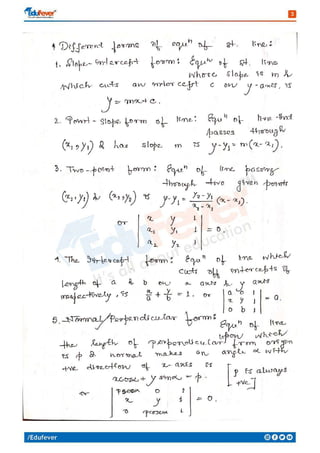 Edufever
3
* Different forms of equn of st. line:
1. Slope-intercept form: Equn of st. line
whose slope is m &
which cuts an intercept c on y-axis, is
y = mx + c.
2. Point-slope form of line: Equn of line that
passes through
(x₁, y₁) & has slope m is y-y₁ = m(x-x₁).
3. Two-point form: Equn of line passing
through two given points
(x₁, y₁) & (x₂, y₂) is y-y₁ = y₂-y₁/x₂-x₁ (x-x₁).
or | x y 1 |
| x₁ y₁ 1 | = 0.
| x₂ y₂ 1 |
4. The Intercept form: Equn of line which
cuts off intercepts of
length of a & b on x axis & y axis
respectively, is x/a + y/b = 1. or | a 0 1 |
| x y 1 | = 0.
| 0 b 1 |
5. Normal/Perpendicular form:
Equn of line
upon which
the length of perpendicular from origin
is p & normal makes an angle α with
+ve direction of x-axis is
xcosα + y sinα = p. [p is always +ve]
or | psecα 0 1 |
| x y 1 | = 0.
| 0 pcosecα 1 |
/Edufever